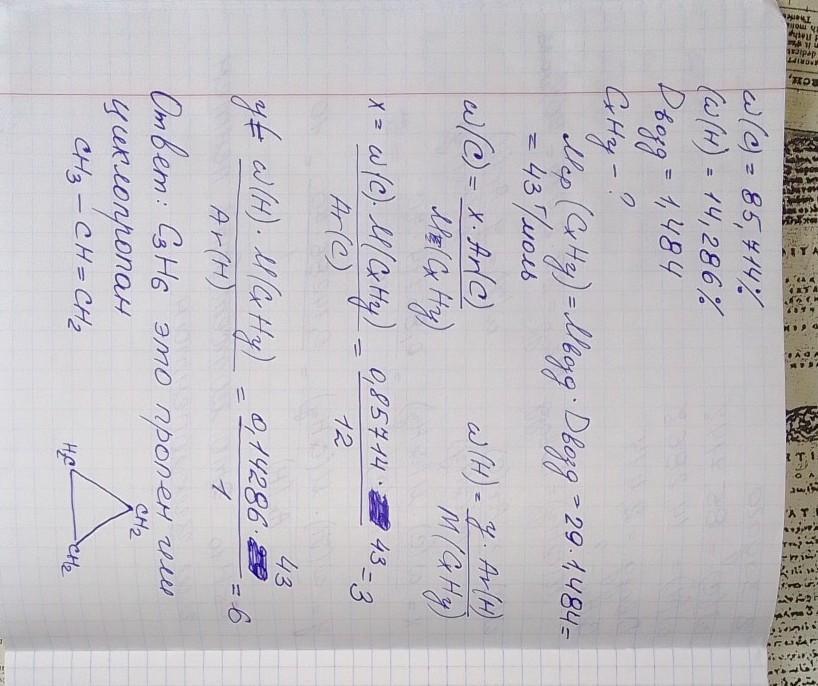 w(C) = 85,714%
w(H) = 14,286%
Dвозд = 1,484
CxHy - ?
Mср (CxHy) = Mвозд · Dвозд = 29 · 1,484 =
= 43 г/моль
w(C) = x · Ar(C) / M(CxHy) w(H) = y · Ar(H) / M(CxHy)
x = w(C) · M(CxHy) / Ar(C) = 0,85714 · 43 / 12 = 3
y = w(H) · M(CxHy) / Ar(H) = 0,14286 · 43 / 1 = 6
Ответ: C3H6 это пропен или
циклопропан
CH3 – CH = CH2
CH2
H2C
CH2